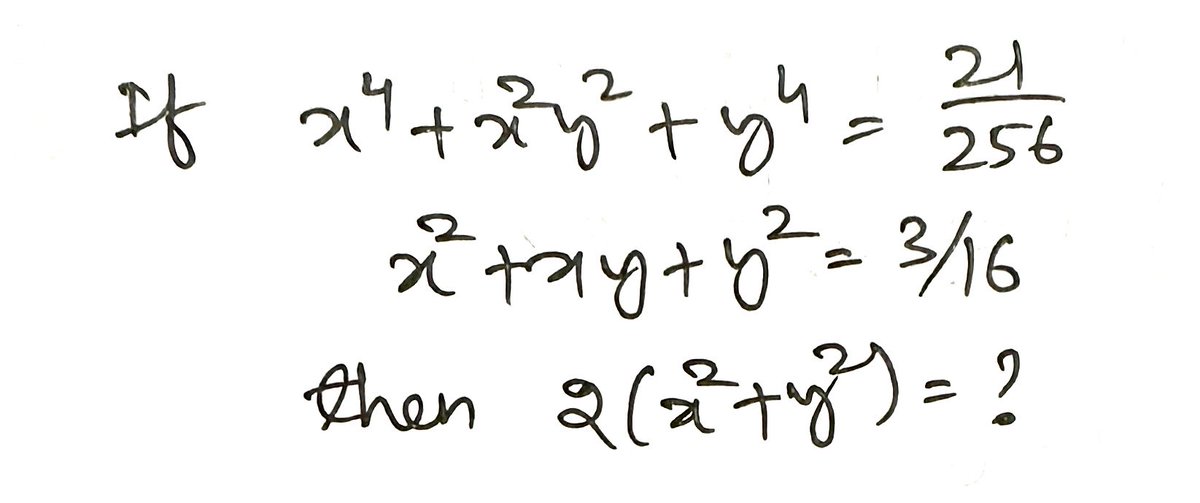 If x⁴ + x²y² + y⁴ = 21/256
x² + xy + y² = 3/16
then 2(x² + y²) = ?